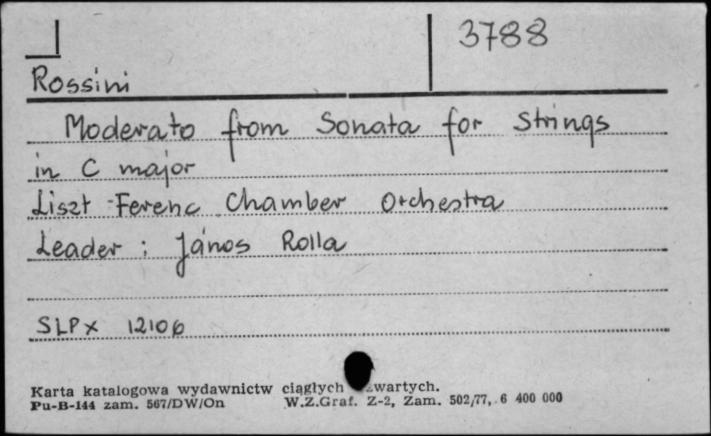 3788
Rossini
Moderato from Sonata for Strings
in C major
Liszt Ferenc Chamber Orchestra
Leader : János Rolla
SLPX 12106
Karta katalogowa wydawnictw ciągłych zwartych.
Pu-B-144 zam. 567/DW/On W.Z.Graf. Z-2, Zam. 502/77, 6 400 000